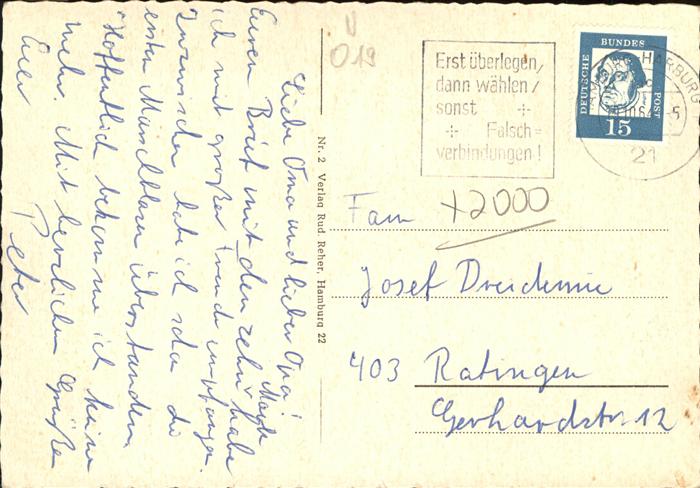 Liebe Oma und lieber Opa!
Euren Brief mit den zehn Mark habe
ich mit großer Freude empfangen.
Inzwischen habe ich schon die
ersten Marschblasen überstanden.
Hoffentlich bekomme ich keine
mehr. Mit herzlichen Grüßen
Euer Peter
Nr. 2 Verlag Rud. Reher, Hamburg 22
019
Erst überlegen,
dann wählen,
sonst
Falsch=
verbindungen!
DEUTSCHE BUNDESPOST
15
HAMBURG-HARBURG
21
+2000
Fam
Josef Dreidemie
403 Ratingen
Gerhardstr. 12